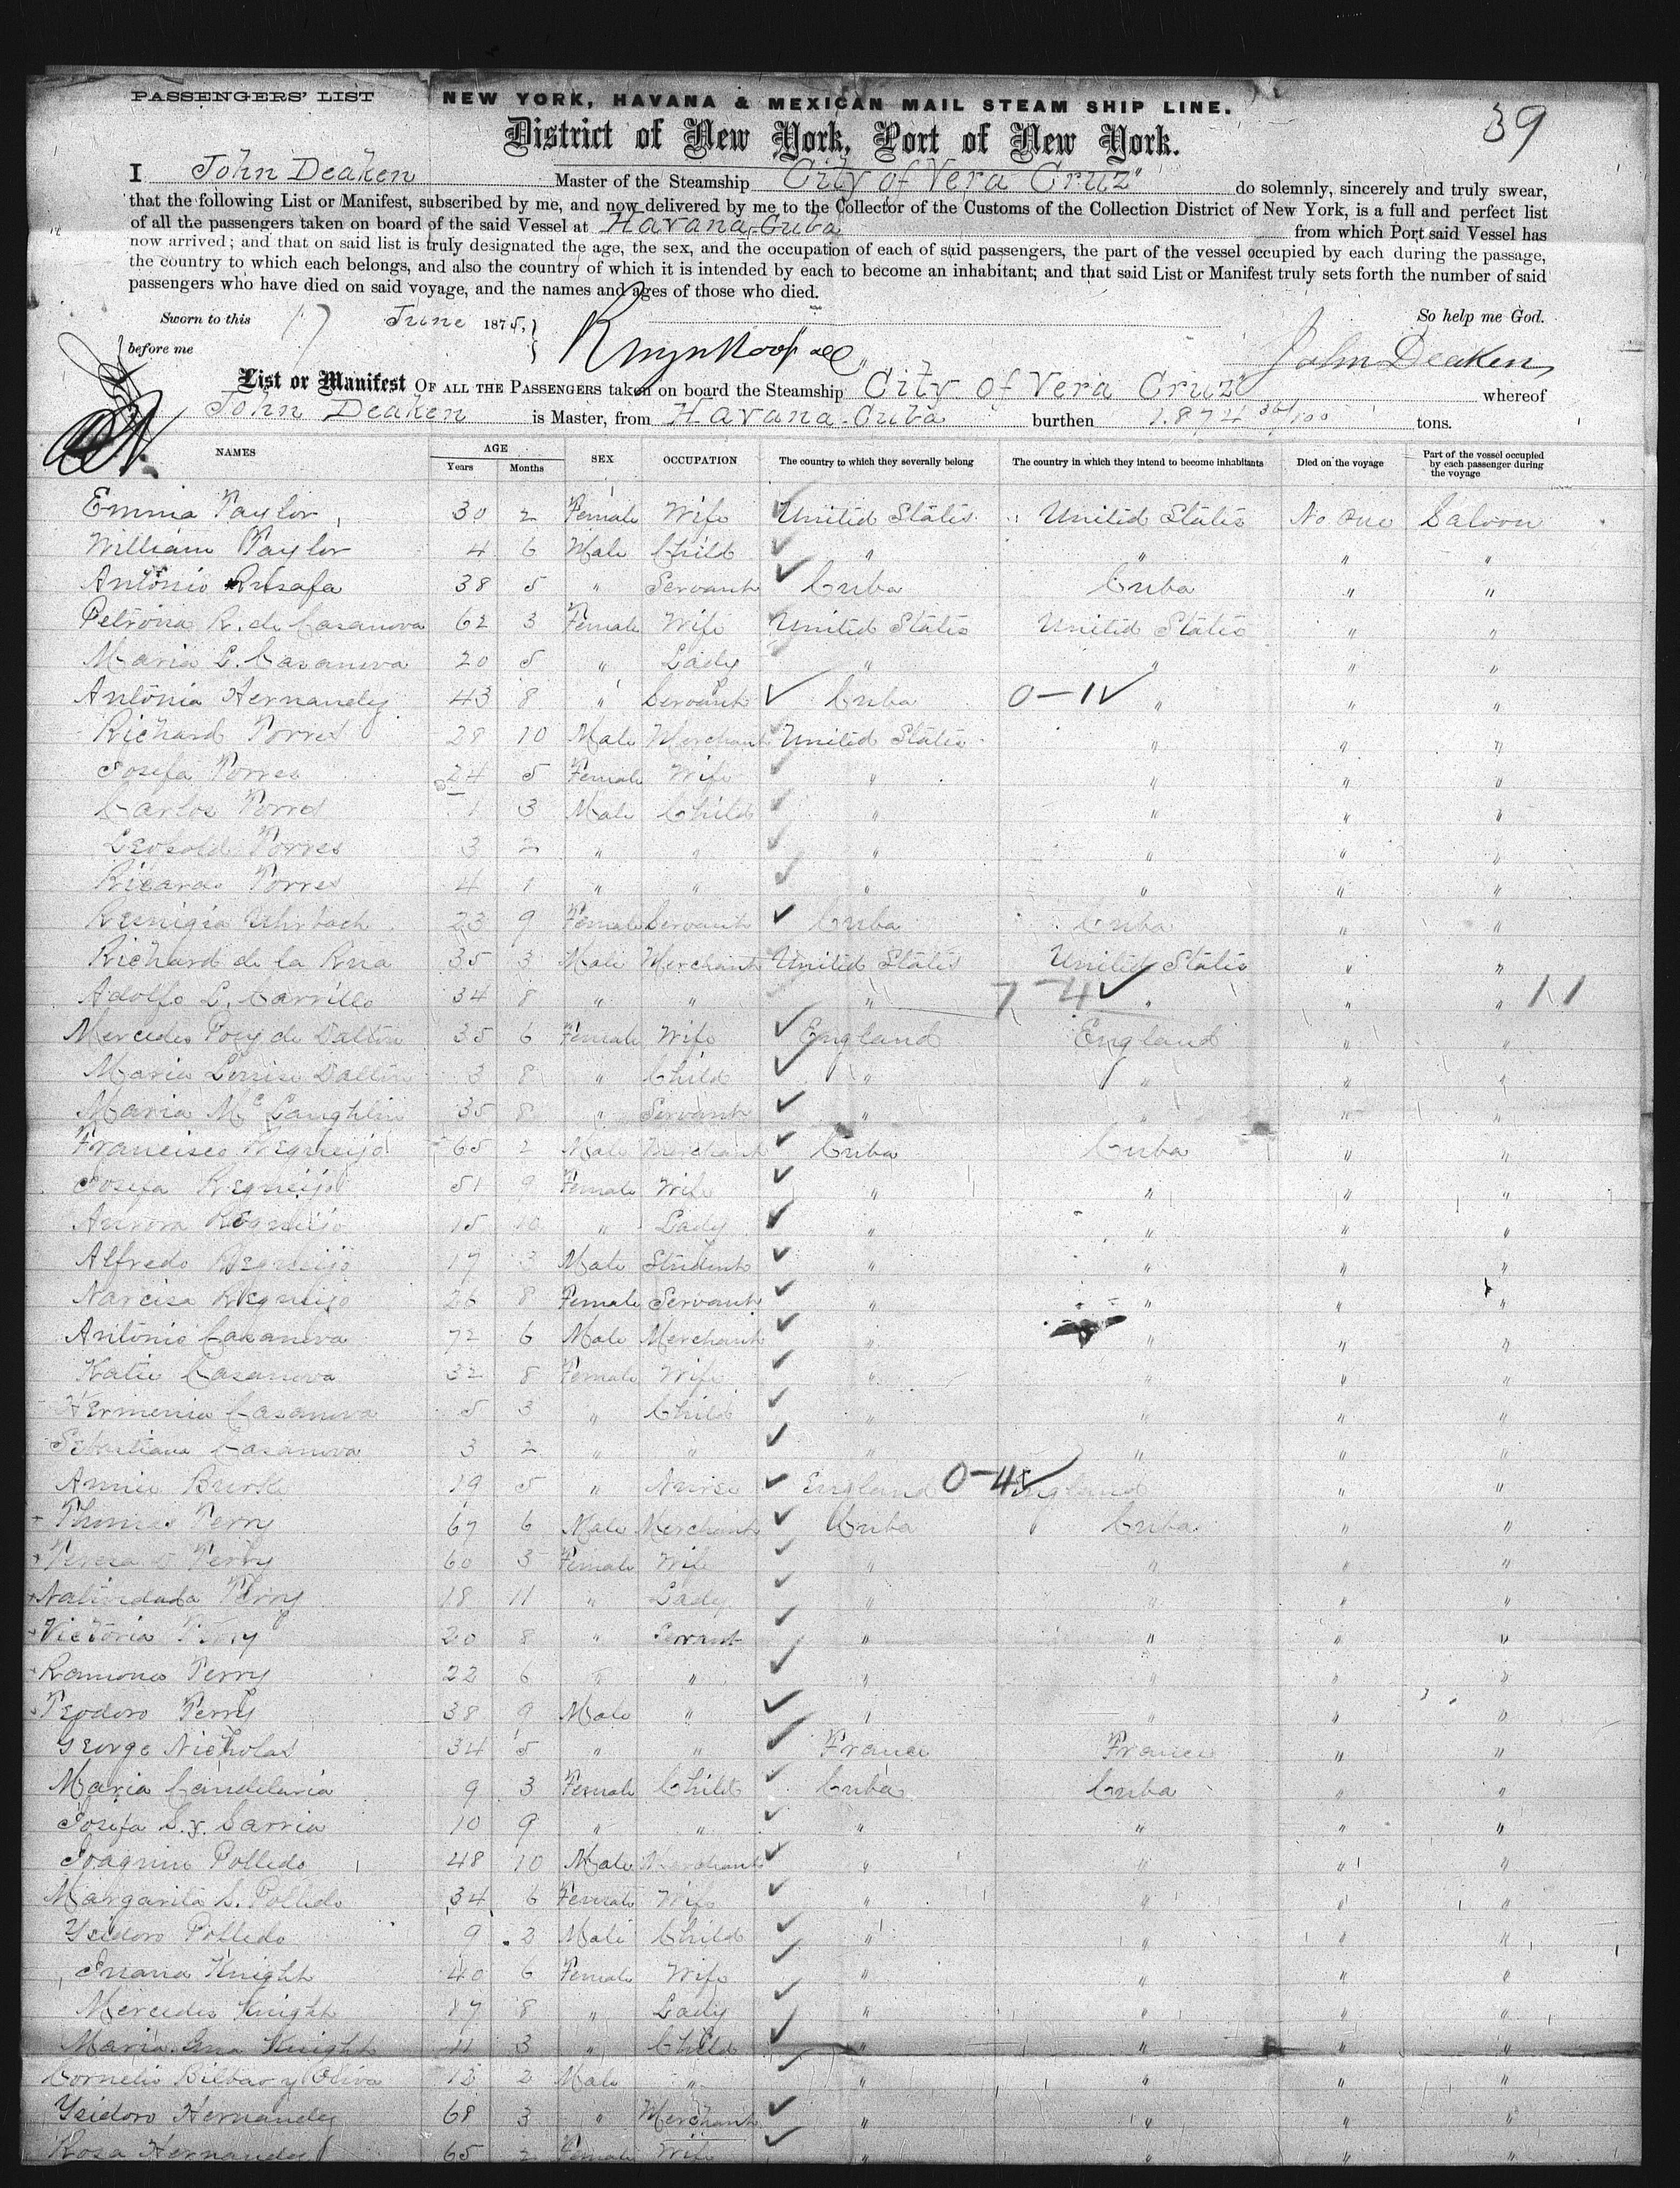 PASSENGERS' LIST NEW YORK, HAVANA & MEXICAN MAIL STEAM SHIP LINE. 39
District of New York, Port of New York.
I John Deaken Master of the Steamship "City of Vera Cruz" do solemnly, sincerely and truly swear,
that the following List or Manifest, subscribed by me, and now delivered by me to the Collector of the Customs of the Collection District of New York, is a full and perfect list
of all the passengers taken on board of the said Vessel at Havana-Cuba from which Port said Vessel has
now arrived; and that on said list is truly designated the age, the sex, and the occupation of each of said passengers, the part of the vessel occupied by each during the passage,
the country to which each belongs, and also the country of which it is intended by each to become an inhabitant; and that said List or Manifest truly sets forth the number of said
passengers who have died on said voyage, and the names and ages of those who died.
Sworn to this 17 June 1875, So help me God.
before me John Deaken
List or Manifest OF ALL THE PASSENGERS taken on board the Steamship "City of Vera Cruz" whereof
John Deaken is Master, from Havana-Cuba burthen 1.874 36/100 tons.
NAMES AGE Years Months SEX OCCUPATION The country to which they severally belong The country in which they intend to become inhabitants Died on the voyage Part of the vessel occupied by each passenger during the voyage
Emma Taylor 30 2 Female Wife United States United States No One Saloon
William Taylor 4 6 Male Child " " " "
Antonio 38 5 " Servant Cuba Cuba " "
Petrona R. de Casanova 62 3 Female Wife United States United States " "
Maria L. Casanova 20 5 " Lady " " " "
Antonia Hernandez 43 8 " Servant Cuba 0-1 " " "
Richard Torres 28 10 Male Merchant United States " " "
Josefa Torres 24 5 Female Wife " " " "
Carlos Torres 1 3 Male Child " " " "
Leopold Torres 3 2 " " " " " "
Ricardo Torres 4 1 " " " " " "
Remigia Uhrbach 23 9 Female Servant Cuba Cuba " "
Richard de la Rua 35 3 Male Merchant United States United States " "
Adolfo L. Carrillo 34 8 " " " 7-4 " " " 11
Mercedes Poey de Dalton 35 6 Female Wife England England " "
Maria Louise Dalton 3 8 " Child " " " "
Maria McLaughlin 35 8 " Servant " " " "
Francisco Regueijo 65 2 Male Merchant Cuba Cuba " "
Josefa Regueijo 51 9 Female Wife " " " "
Aurora Regueijo 15 10 " Lady " " " "
Alfredo Regueijo 17 3 Male Student " " " "
Narcisa Regueijo 26 8 Female Servant " " " "
Antonio Casanova 72 6 Male Merchant " " " "
Katie Casanova 32 8 Female Wife " " " "
Hermenia Casanova 5 3 " Child " " " "
Sebastiana Casanova 3 2 " " " " " "
Annie Burke 19 5 " Nurse England 0-4 England " "
Thomas Terry 67 6 Male Merchant Cuba Cuba " "
Teresa D. Terry 60 3 Female Wife " " " "
Terry 18 11 " Lady " " " "
Victoria Terry 20 8 " Servant " " " "
Ramona Terry 22 6 " " " " " "
Teodoro Terry 38 9 Male " " " " "
George Nicholas 34 5 " " France France " "
Maria Candelaria 9 3 Female Child Cuba Cuba " "
Josefa S. y. Sarria 10 9 " " " " " "
Joaquin Polledo 48 10 Male Merchant " " " "
Margarita S. Polledo 34 6 Female Wife " " " "
Ysidoro Polledo 9 2 Male Child " " " "
Juana Knight 40 6 Female Wife " " " "
Mercedes Knight 17 8 " Lady " " " "
Maria Ana Knight 11 3 " Child " " " "
Cornelio Bilbao y Oliva 13 2 Male " " " " "
Ysidoro Hernandez 68 3 " Merchant " " " "
Rosa Hernandez 65 2 Female Wife " " " "